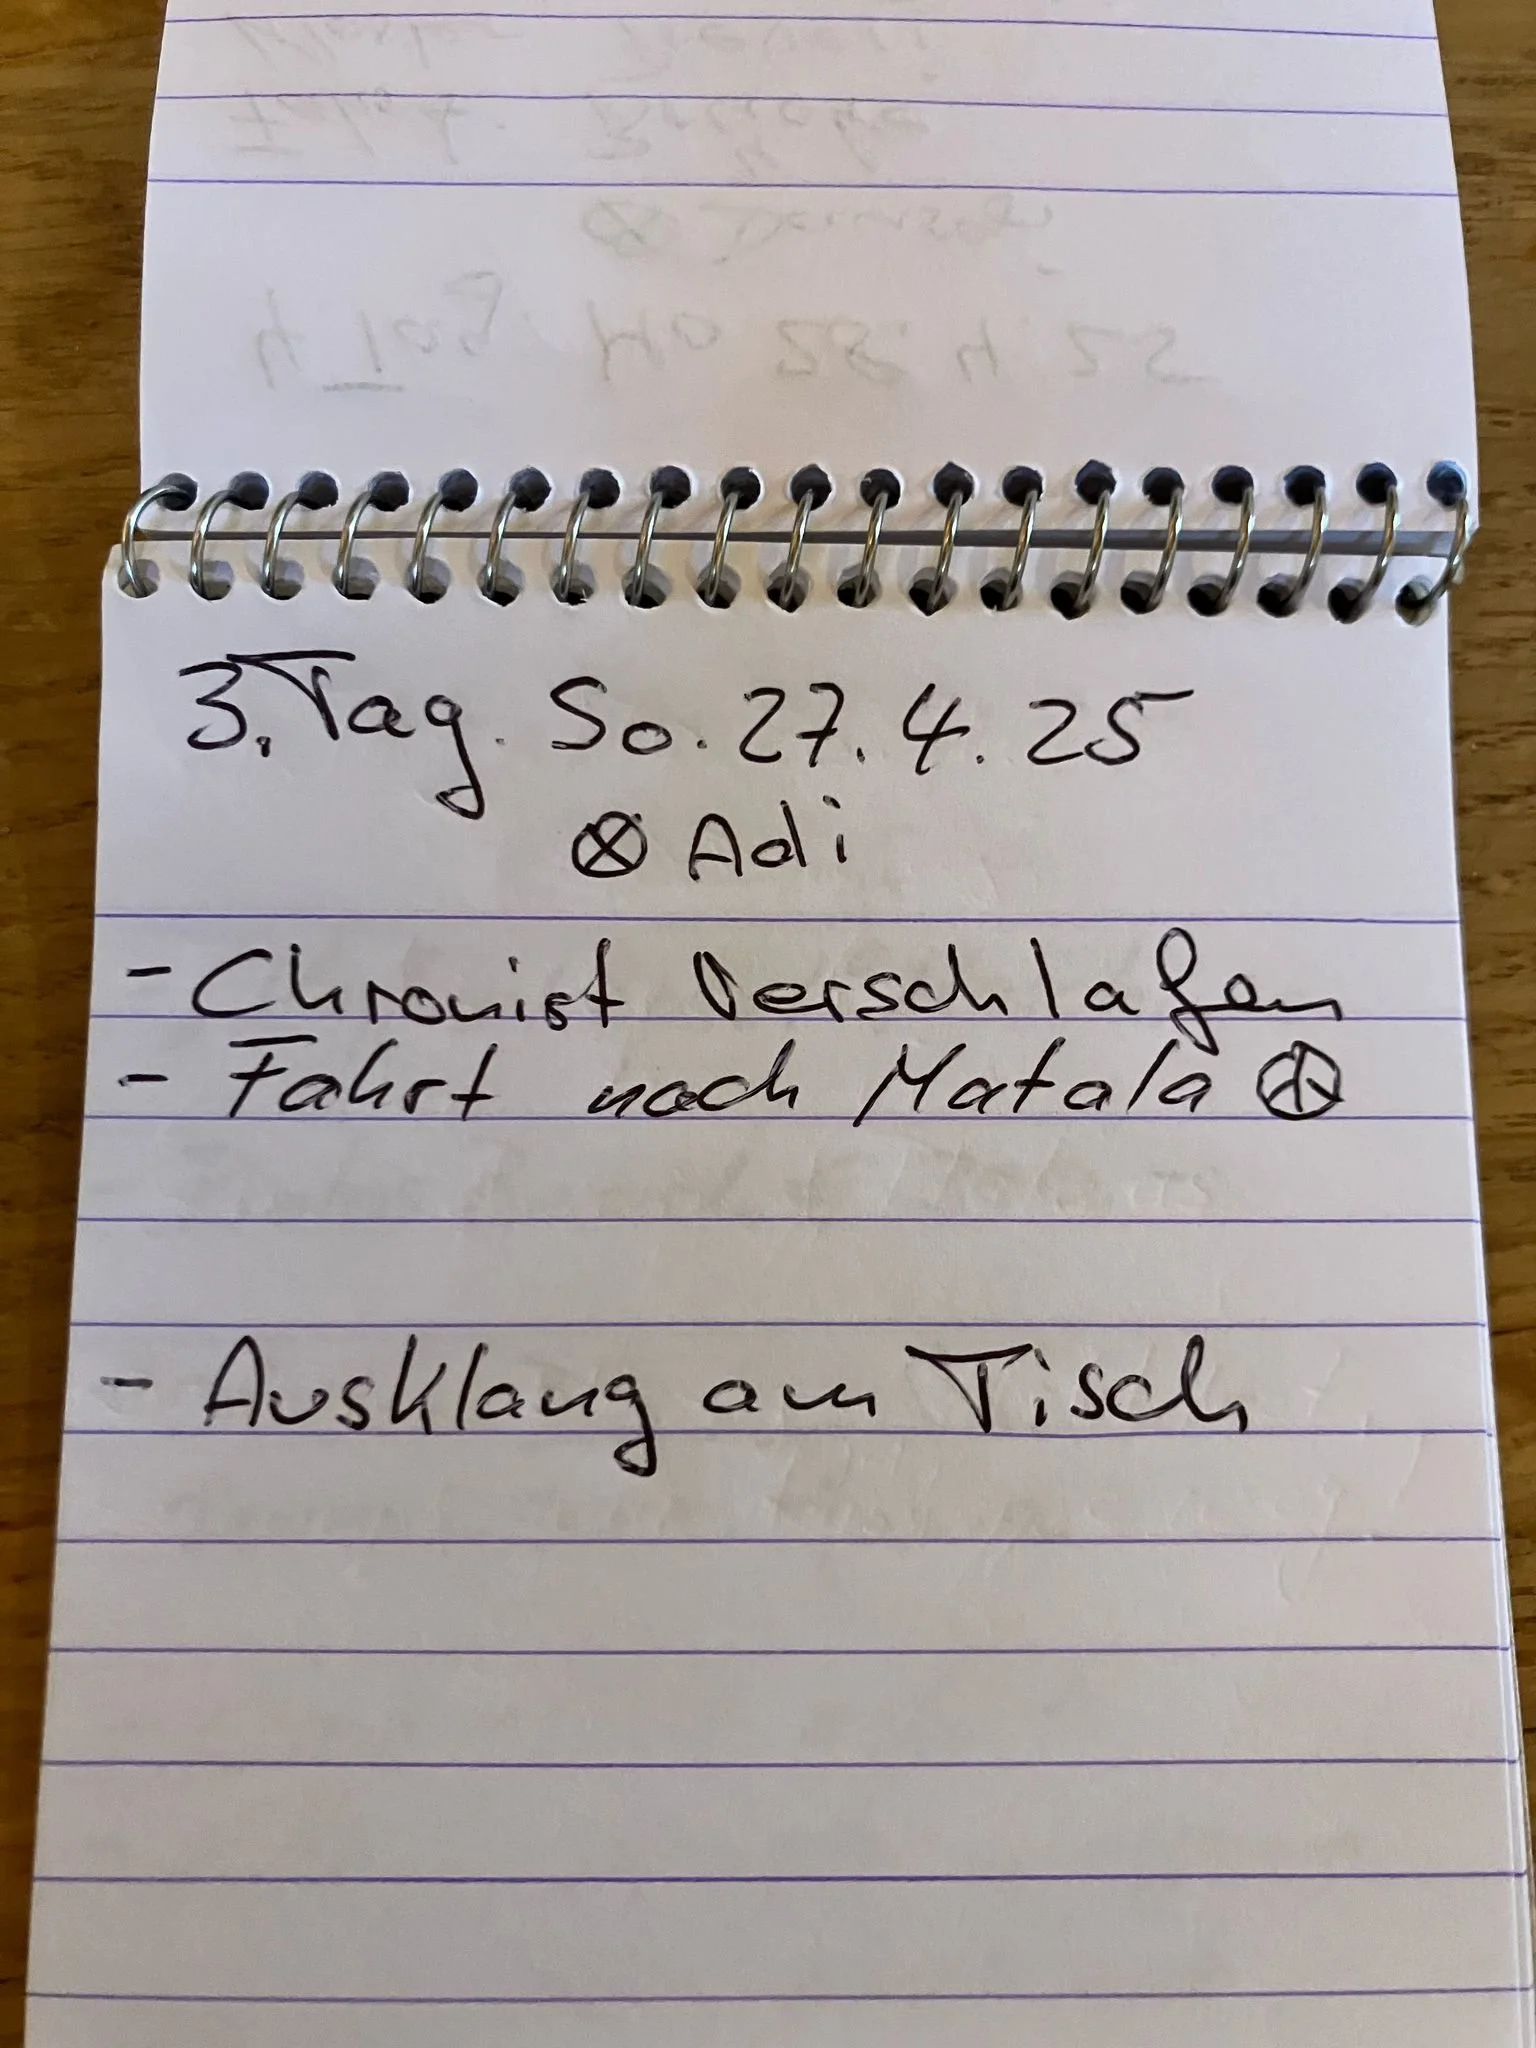 4 Tag. Mo 28.4.25
3. Tag. So. 27.4.25
⊗ Adi
- Chronist Verschlafen
- Fahrt nach Matala ☮
- Ausklang am Tisch